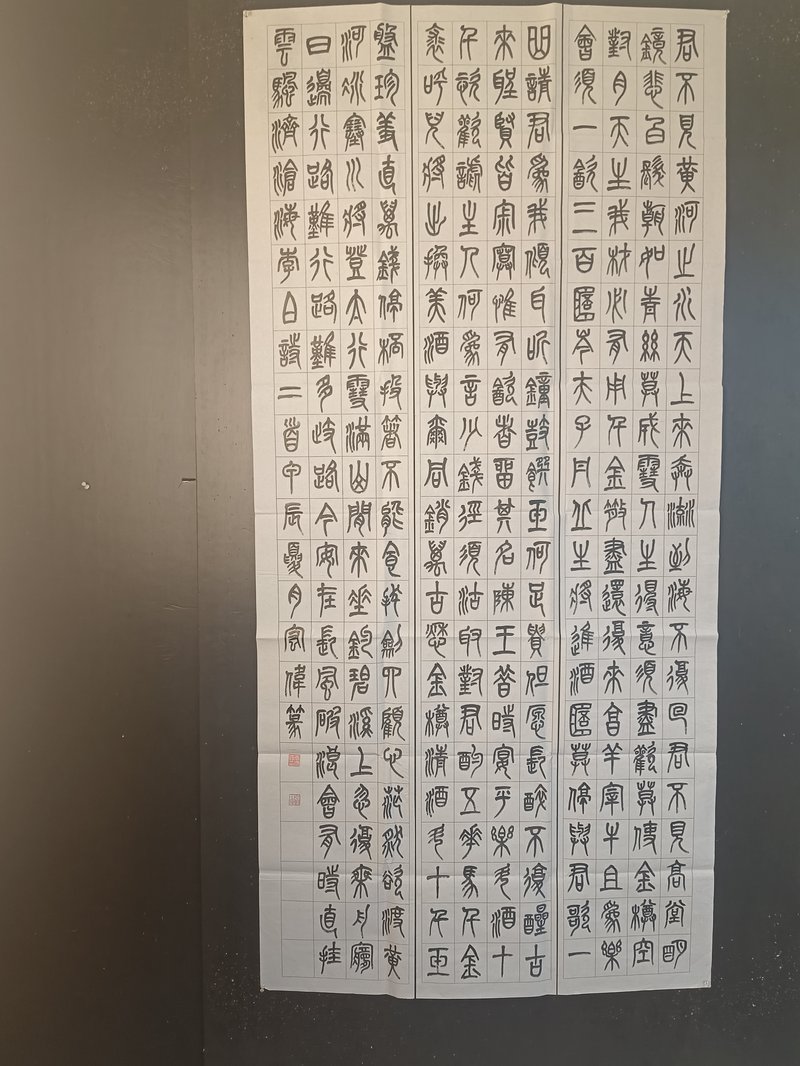 君不見黃河之水天上來奔流到海不復回君不見高堂明
鏡悲白髮朝如青絲莫成雪人生得意須盡歡莫使金樽空
對月天生我材必有用千金散盡還復來烹羊宰牛且爲樂
會須一飲三百杯岑夫子丹丘生將進酒杯莫停與君歌一
曲請君爲我傾耳听鐘鼓饌玉何足貴但愿長醉不復醒古
來聖賢皆寂寞惟有飲者留其名陳王昔時宴平樂斗酒十
千恣歡謔主人何爲言少錢徑須沽取對君酌五花馬千金
裘呼兒將出換美酒與爾同銷萬古愁金樽清酒斗十千玉
盤珍羞直萬錢停杯投箸不能食拔劍四顧心茫然欲渡黃
河冰塞川將登太行雪滿山閒來垂釣碧溪上忽復乘舟夢
日邊行路難行路難多歧路今安在長風破浪會有時直挂
雲帆濟滄海李白詩二首甲辰夏月宏偉篆